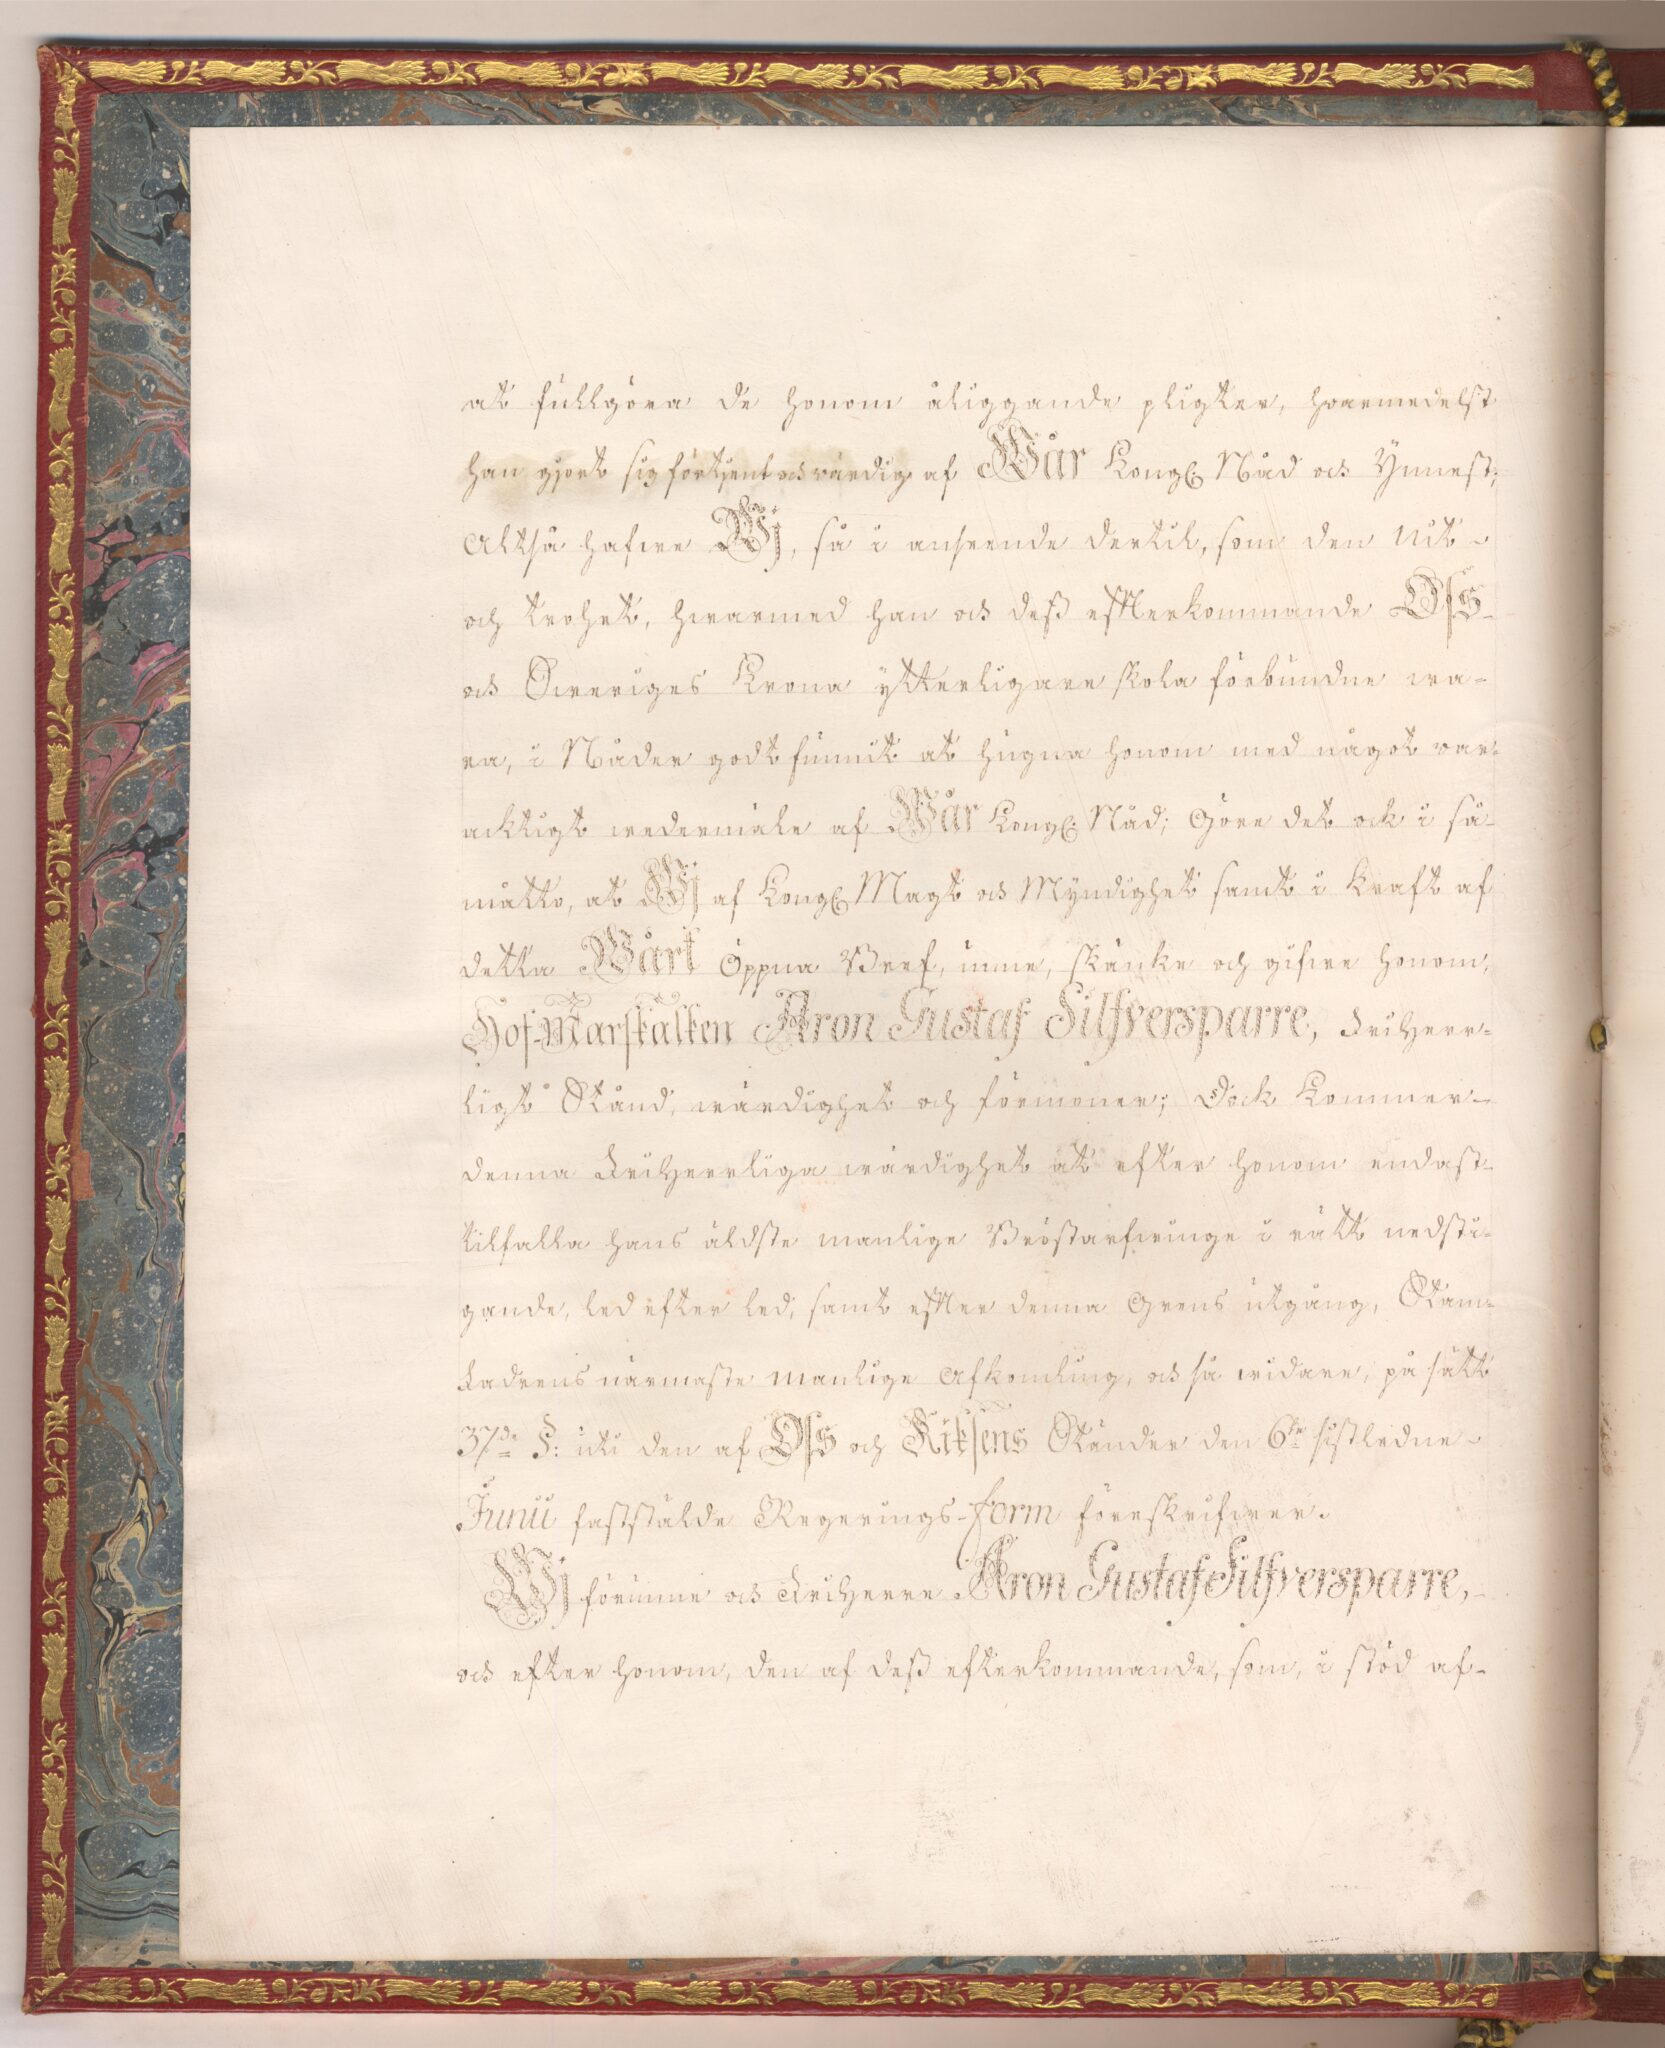 at fullgöra de honom åliggande pligter, hvarmedelst
han gjort sig förtjent och värdig af Wår Kongl. Nåd och Ynnest;
Altså hafwe Wij, så i anseende dertil, som den nit
och trohet, hwarmed han och deß efterkommande Oſs
och Sweriges Krona ytterligare skola förbundne wa-
ra, i Nåder godt funnit at hugna honom med något var-
acktigt wedermäle af Wår Kongl. Nåd; Göre det ock i så
mätto, at Wij af Kongl. Magt och Myndighet samt i kraft af
detta Wårt Öppna Bref, unne, skänke och gifwe honom,
Hof-Marskalken Aron Gustaf Silfversparre, FriHerr-
ligt Stånd, wärdighet och förmoner; Dock Kommer
denna FriHerrliga wärdighet at efter honom endast
tilfalla hans äldste manlige Bröstarfwinge i rätt nedsti-
gande, led efter led, samt efter denna Grens utgång, Stam-
Fadrens närmaste manlige Afkomling, och så widare, på sätt
37de §: uti den af Oſs och Riksens Ständer den 6te sistledne
Junii faststälde Regerings-form föreskrifwer.
Wij förunne och FriHerre Aron Gustaf Silfversparre,
och efter honom, den af deß efterkommande, som, i stöd af